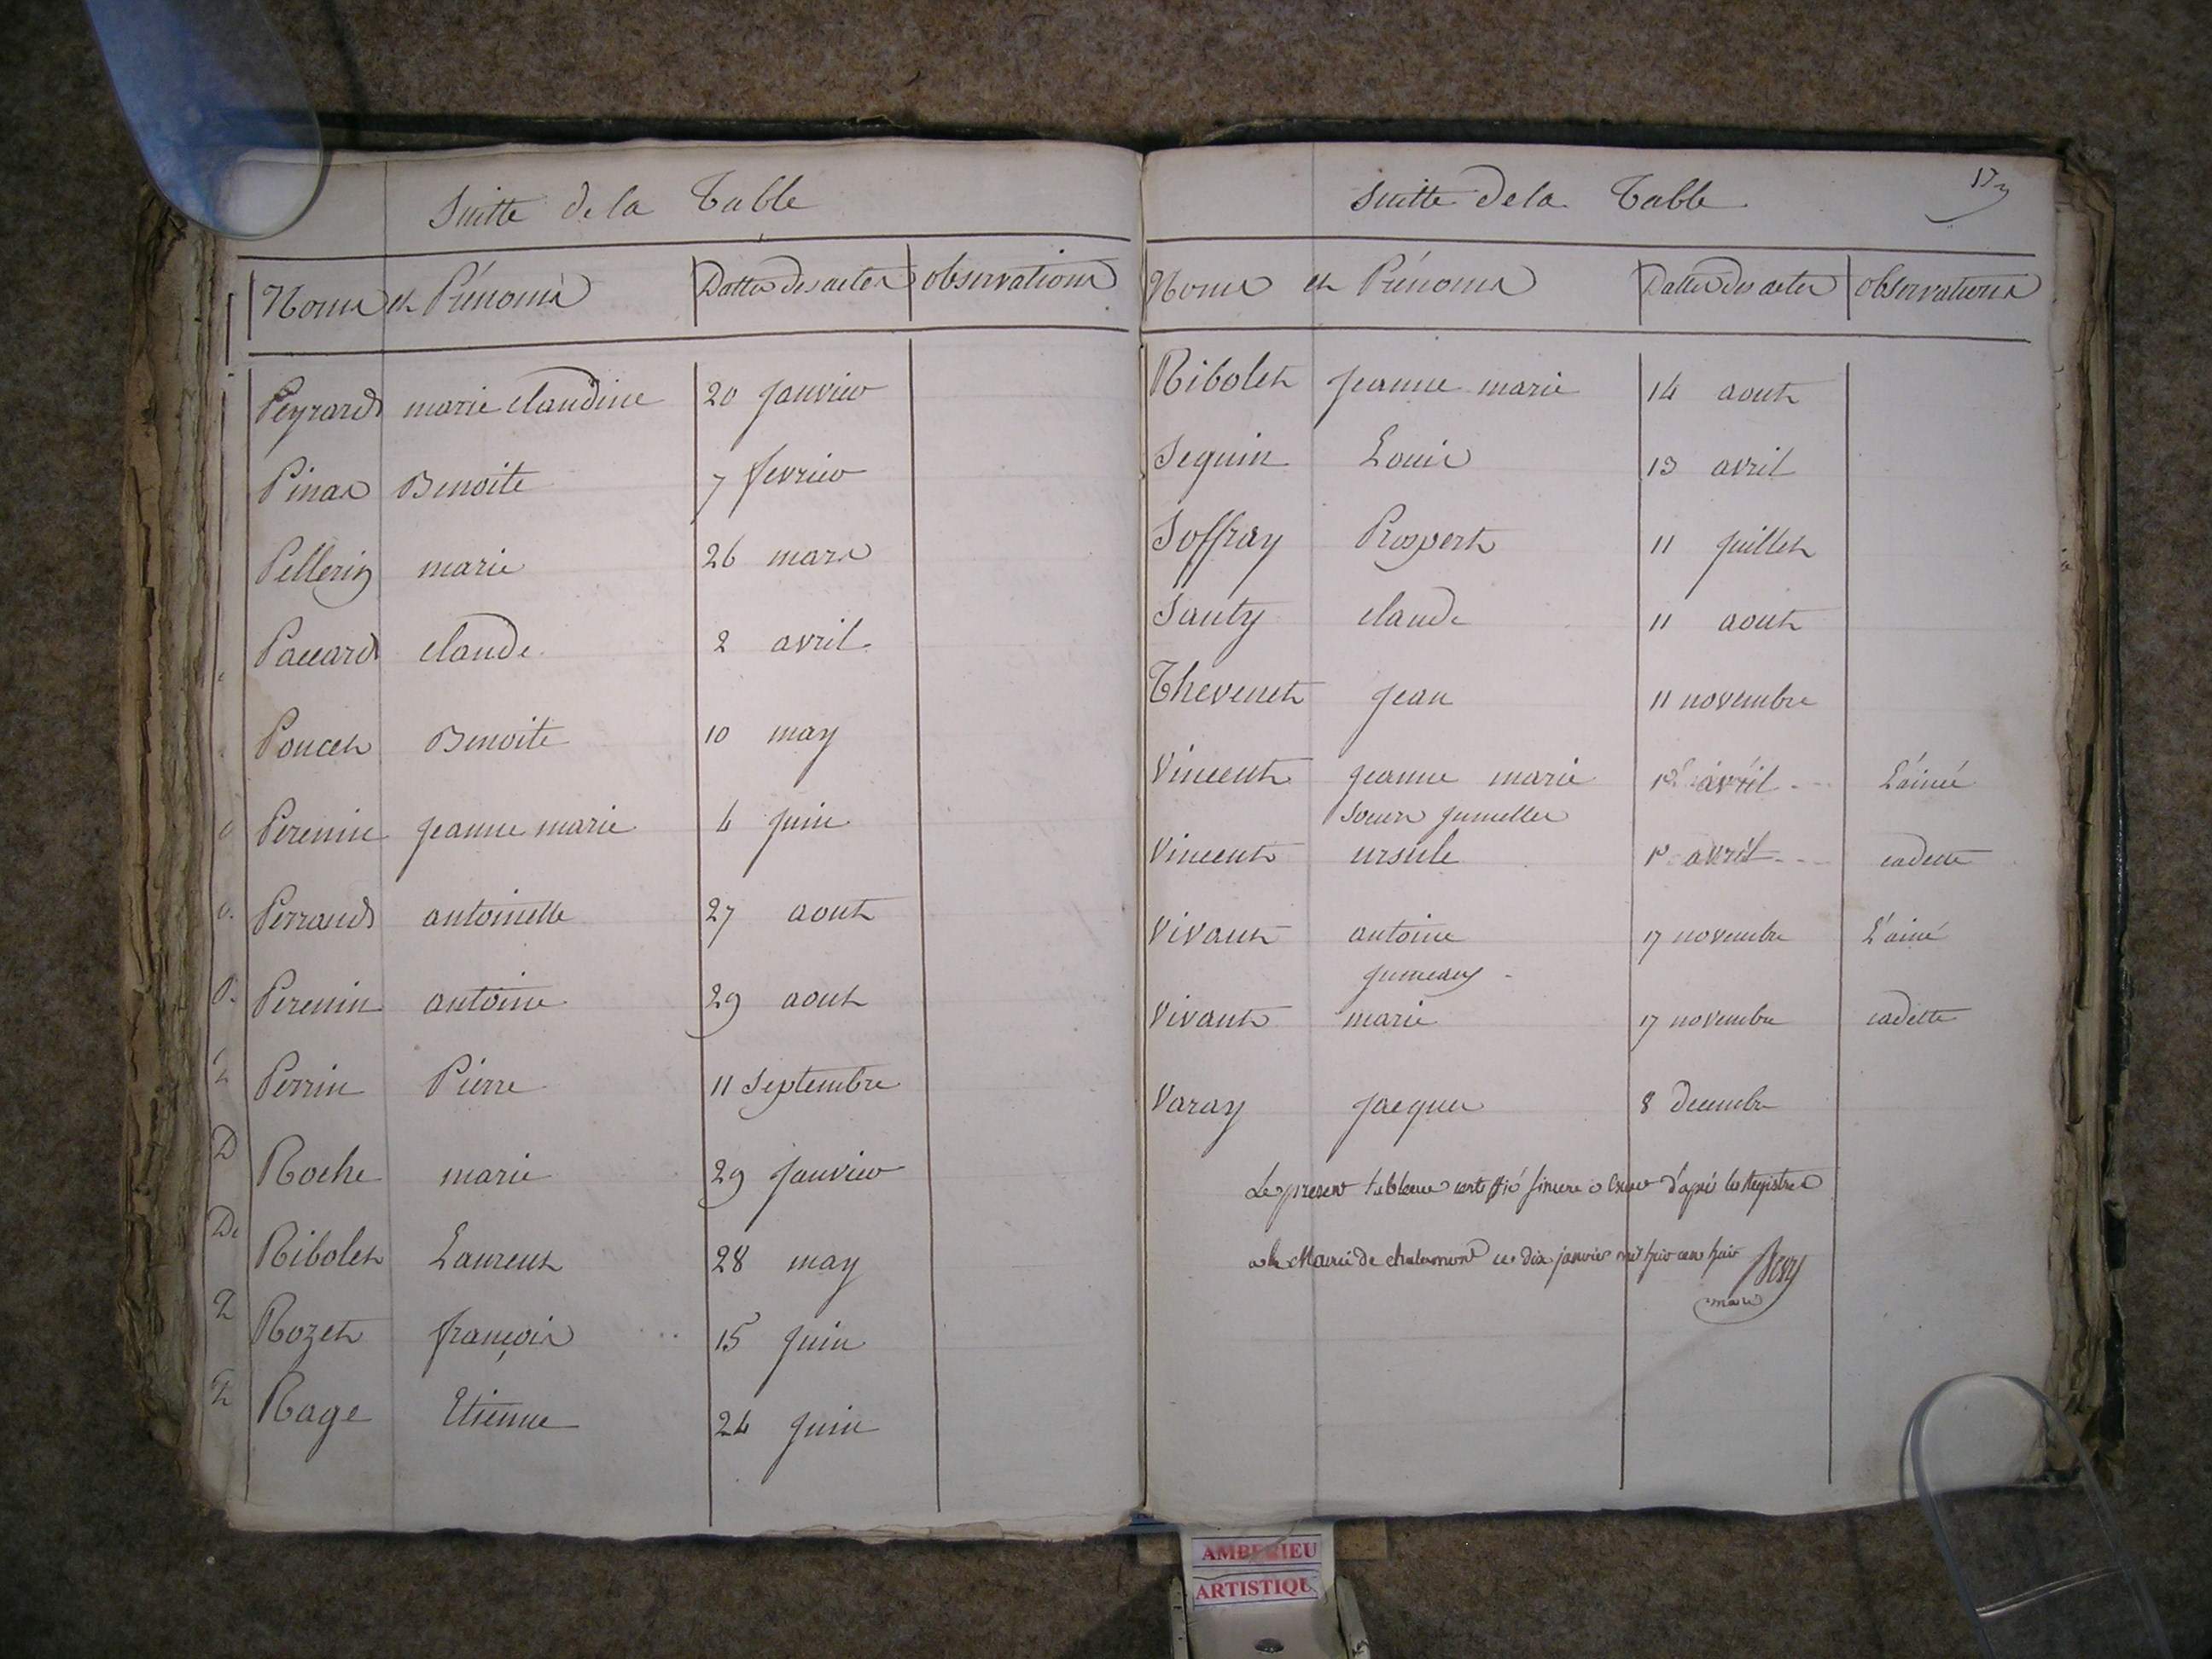 Suitte de la Table
Noms et Prénoms Dattes des actes observations
Peyrard marie claudine 20 janvier
Pinas Benoite 7 fevrier
Pellerin marie 26 mars
Paccard claude 2 avril
Poncet Benoite 10 may
Perenin jeanne marie 4 juin
Perraud antoinette 27 aout
Perenin antoine 29 aout
Perrin Pierre 11 septembre
Roche marie 29 janvier
Ribolet Laurent 28 may
Rozet françois 15 juin
Rage Etienne 24 juin
Suitte de la Table 17
Noms et Prénoms Dattes des actes observations
Ribolet jeanne marie 14 aout
Seguin Louis 13 avril
Soffray Prospert 11 juillet
Santy claude 11 aout
Thevenet jean 11 novembre
Vincent jeanne marie 1er avril L'ainée
soeurs jumelles
Vincent ursule 1er avril cadette
Vivant antoine 17 novembre L'ainé
jumeaux
Vivant marie 17 novembre cadette
Varay jacques 8 decembre
Le present tableau certiffié sincere et exact d'après les Registres
a la Mairie de chalamont ce dix janvier mil huit cent huit
maire
AMBERIEU
ARTISTIQUE